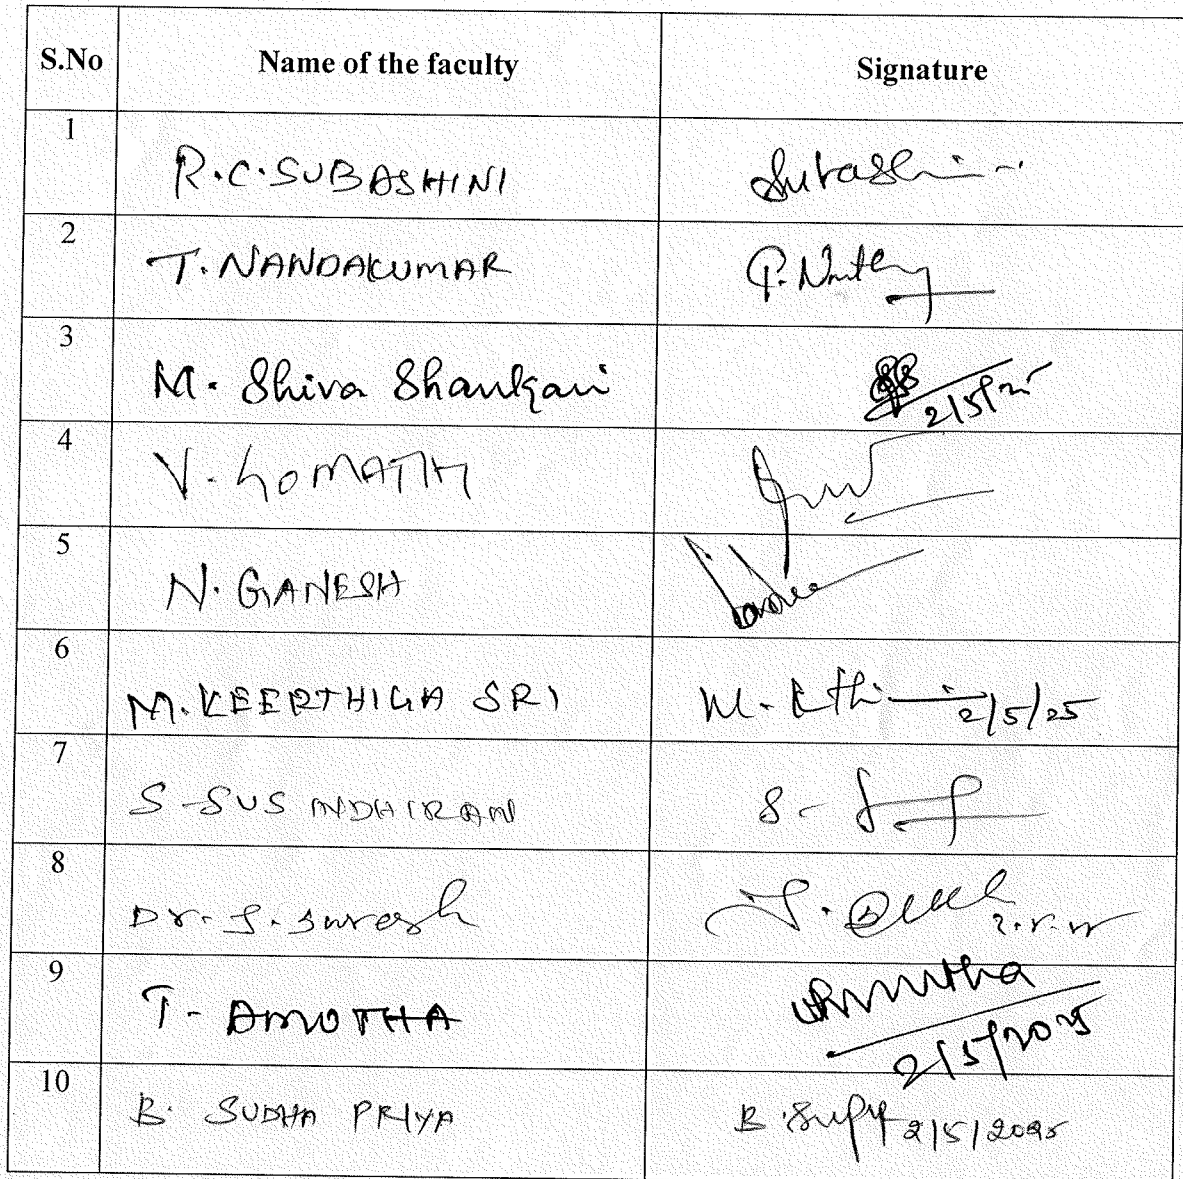 S.No Name of the faculty Signature
1 R.C.SUBASHINI Subashini
2 T. NANDAKUMAR
3 M. Shiva Shankari 2/5/25
4 V. GOMATHI
5 N. GANESH
6 M. KEERTHIGA SRI 2/5/25
7 S-SUSINDHIRAN S-
8 Dr. S. Suresh
9 T- AMUTHA Amutha
2/5/2025
10 B. SUDHA PRIYA 2/5/2025